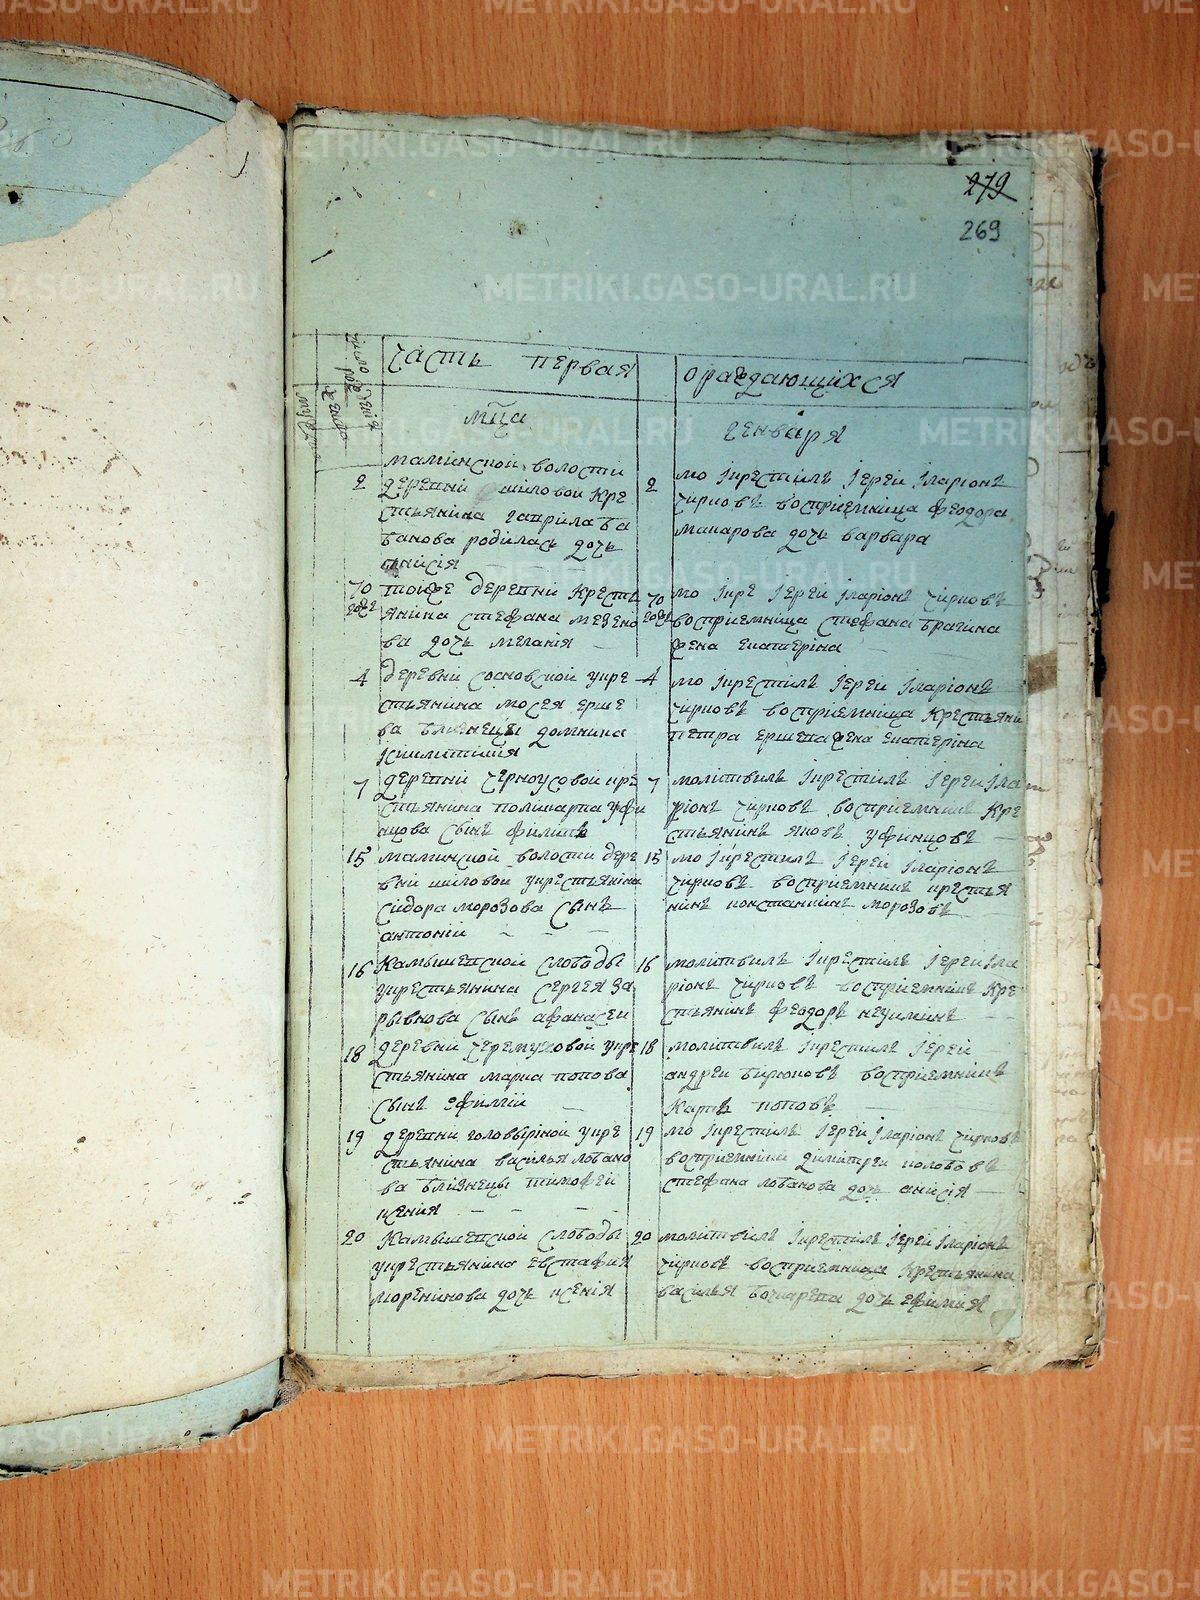 279
269
часть первая
ораждающихся
мца
генваря
маминской волости
2 деревни шиловой кре
стьянина гаврила ба
банова родилась дочь
анисія
2 мо їкрестилъ їерей їларіонъ
чирковъ восприемница феодора
макарова дочь варвара
тойже деревни кресть
янина стефана мезено
ва дочь меланія
мо їкре їерей їларіонъ чирковъ
восприемница стефана брагина
жена екатеріна
4 деревни сосновской укре
стьянина мосея ерше
ва близнецы домнина
4 мо їкрестилъ їерей їларіонъ
чирковъ восприемница крестьяни
петра ершева жена екатеріна
7 деревни черноусовой кре
стьянина поликарпа уфи
нцова сынъ филипъ
7 молитвилъ їкрестилъ їерей їла
ріонъ чирковъ восприемникъ кре
стьянинъ яковъ уфинцовъ
15 маминской волости дере
вни шиловой укрестьянина
сидора морозова сынъ
антоній
15 мо їкрестилъ їерей їларіонъ
чирковъ восприемникъ крестья
нинъ констанинъ морозовъ
16 камышевской слободы
укрестьянина сергея за
рывнова сынъ афанасеи
16 молитвилъ їкрестилъ їерей їла
ріонъ чирковъ восприемникъ кре
стьянинъ феодоръ неуиминъ
18 деревни черемуховой укре
стьянина марка попова
сынъ ефимій
18 молитвилъ їкрестилъ їерей
андреи бирюковъ восприемникъ
карпъ поповъ
19 деревни головыриной укре
стьянина василья лобано
ва близнецы тимофей
ксенія
19 мо їкрестилъ їерей їларіонъ чирковъ
восприемники димитрей колобовъ
стефана лобанова дочь анисія
20 камышевской слободы
укрестьянина евстафия
моренкова дочь ксенія
20 молитвилъ їкрестилъ їерей їларіонъ
чирковъ восприемница крестьянина
василья бочкарева дочь ефимия
METRIKI.GASO-URAL.RU